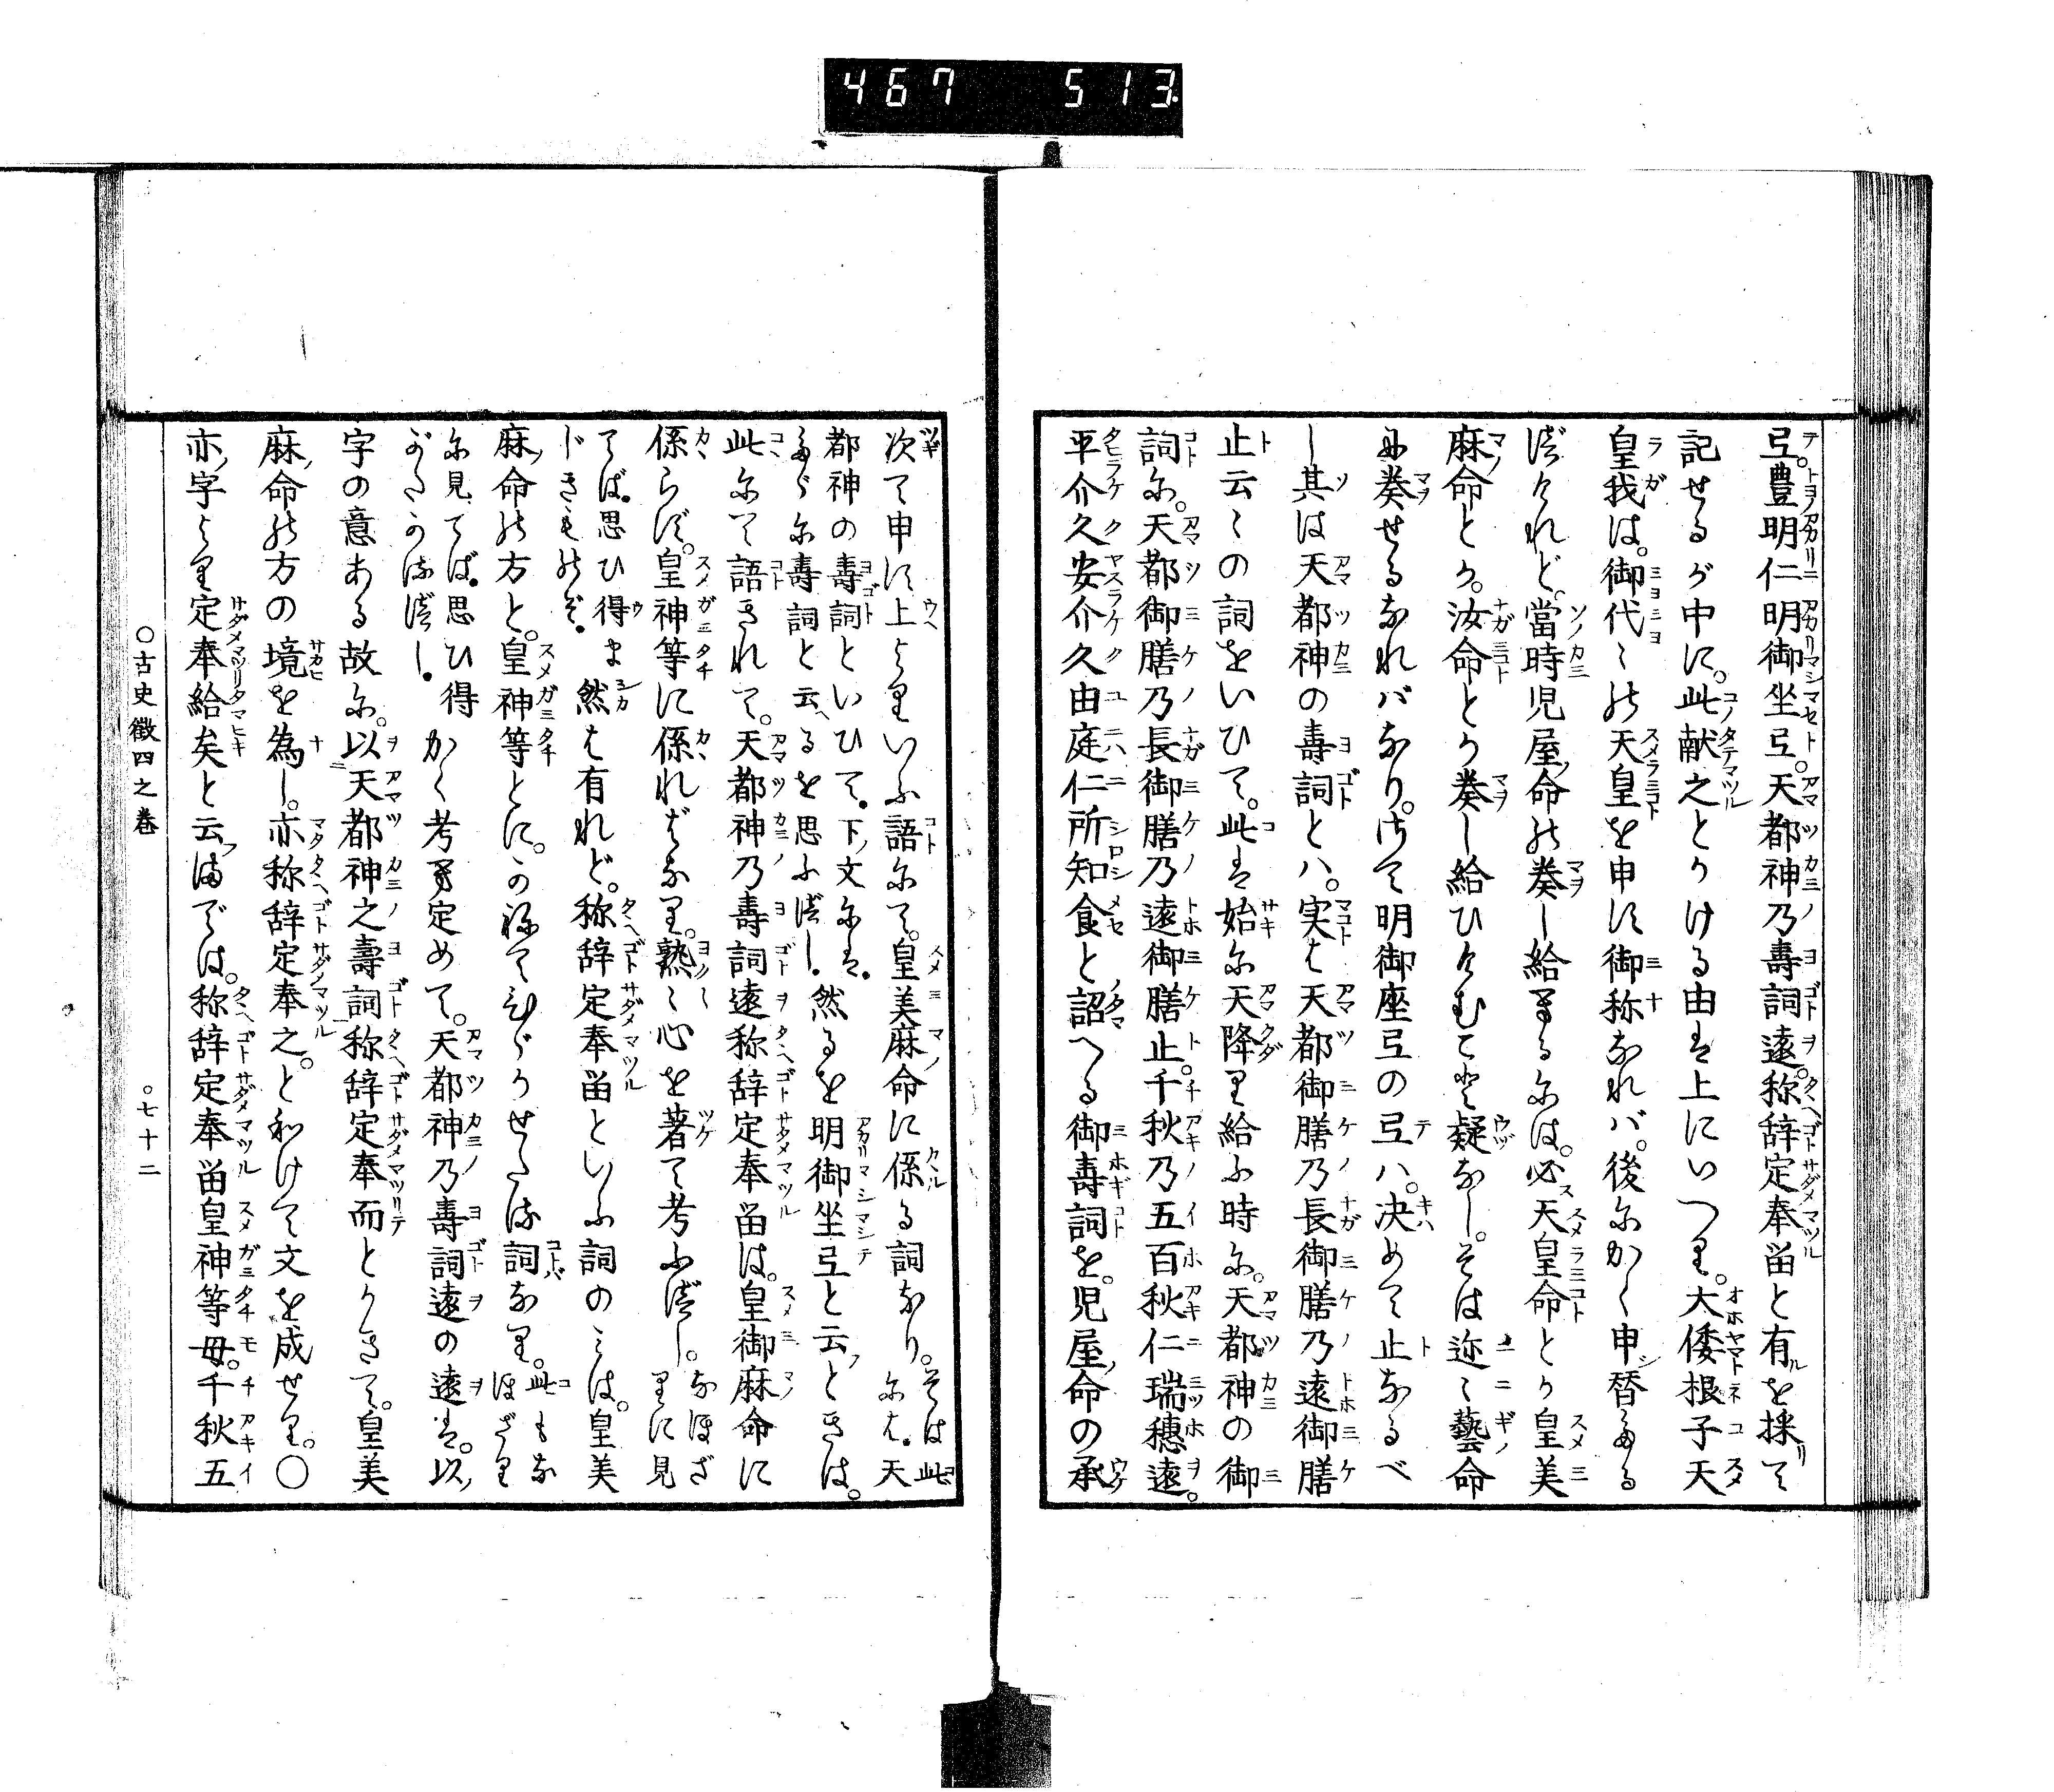 467 513
弖。豊明仁明御坐弖。天都神乃壽詞遠。称辞定奉留と有を採りて
記せるが中に。此献之とかける由は上にいへり。大倭根子天
皇我は。御代〻の天皇を申す御称なれバ。後にかく申し替たる
べけれど。當時児屋命の奏し給へるには。必天皇命とか皇美
麻命とか。汝命とか奏し給ひけむこと疑なし。そは迩〻藝命
に奏せるなれバなり。さて明御座弖の弖ハ。决めて止なるべ
し其は天都神の壽詞とハ。実は天都御膳乃長御膳乃遠御膳
止云〻の詞をいひて。此は始に天降り給ふ時に。天都神の御
詞に。天都御膳乃長御膳乃遠御膳止。千秋乃五百秋仁瑞穗遠。
平介久安介久由庭仁所知食と詔へる御壽詞を。児屋命の承
次て申す上よりいふ語にて。皇美麻命に係る詞なり。そは此には天
都神の壽詞といひて。下文には。
たゞに壽詞と云へるを思ふべし。然るを明御坐弖と云ときは。
此にて語きれて。天都神乃壽詞遠称辞定奉留は。皇御麻命に
係らず。皇神等に係ればなり。熟〻心を著て考ふべし。なほざりに見
てば。思ひ得まじきものぞ。然は有れど。称辞定奉留といふ詞のみは。皇美
麻命の方と。皇神等とに。かねてひゞかせたる詞なり。此もなほざり
に見てば。思ひ得がたかるべし。かく考へ定めて。天都神乃壽詞遠の遠は。以
字の意ある故に。以天都神之壽詞称辞定奉而とかきて。皇美
麻命の方の境を為し。亦称辞定奉之。と和けて文を成せり。○
亦字より定奉給矣と云までは。称辞定奉留皇神等母。千秋五
○古史徴四之巻
○七十二